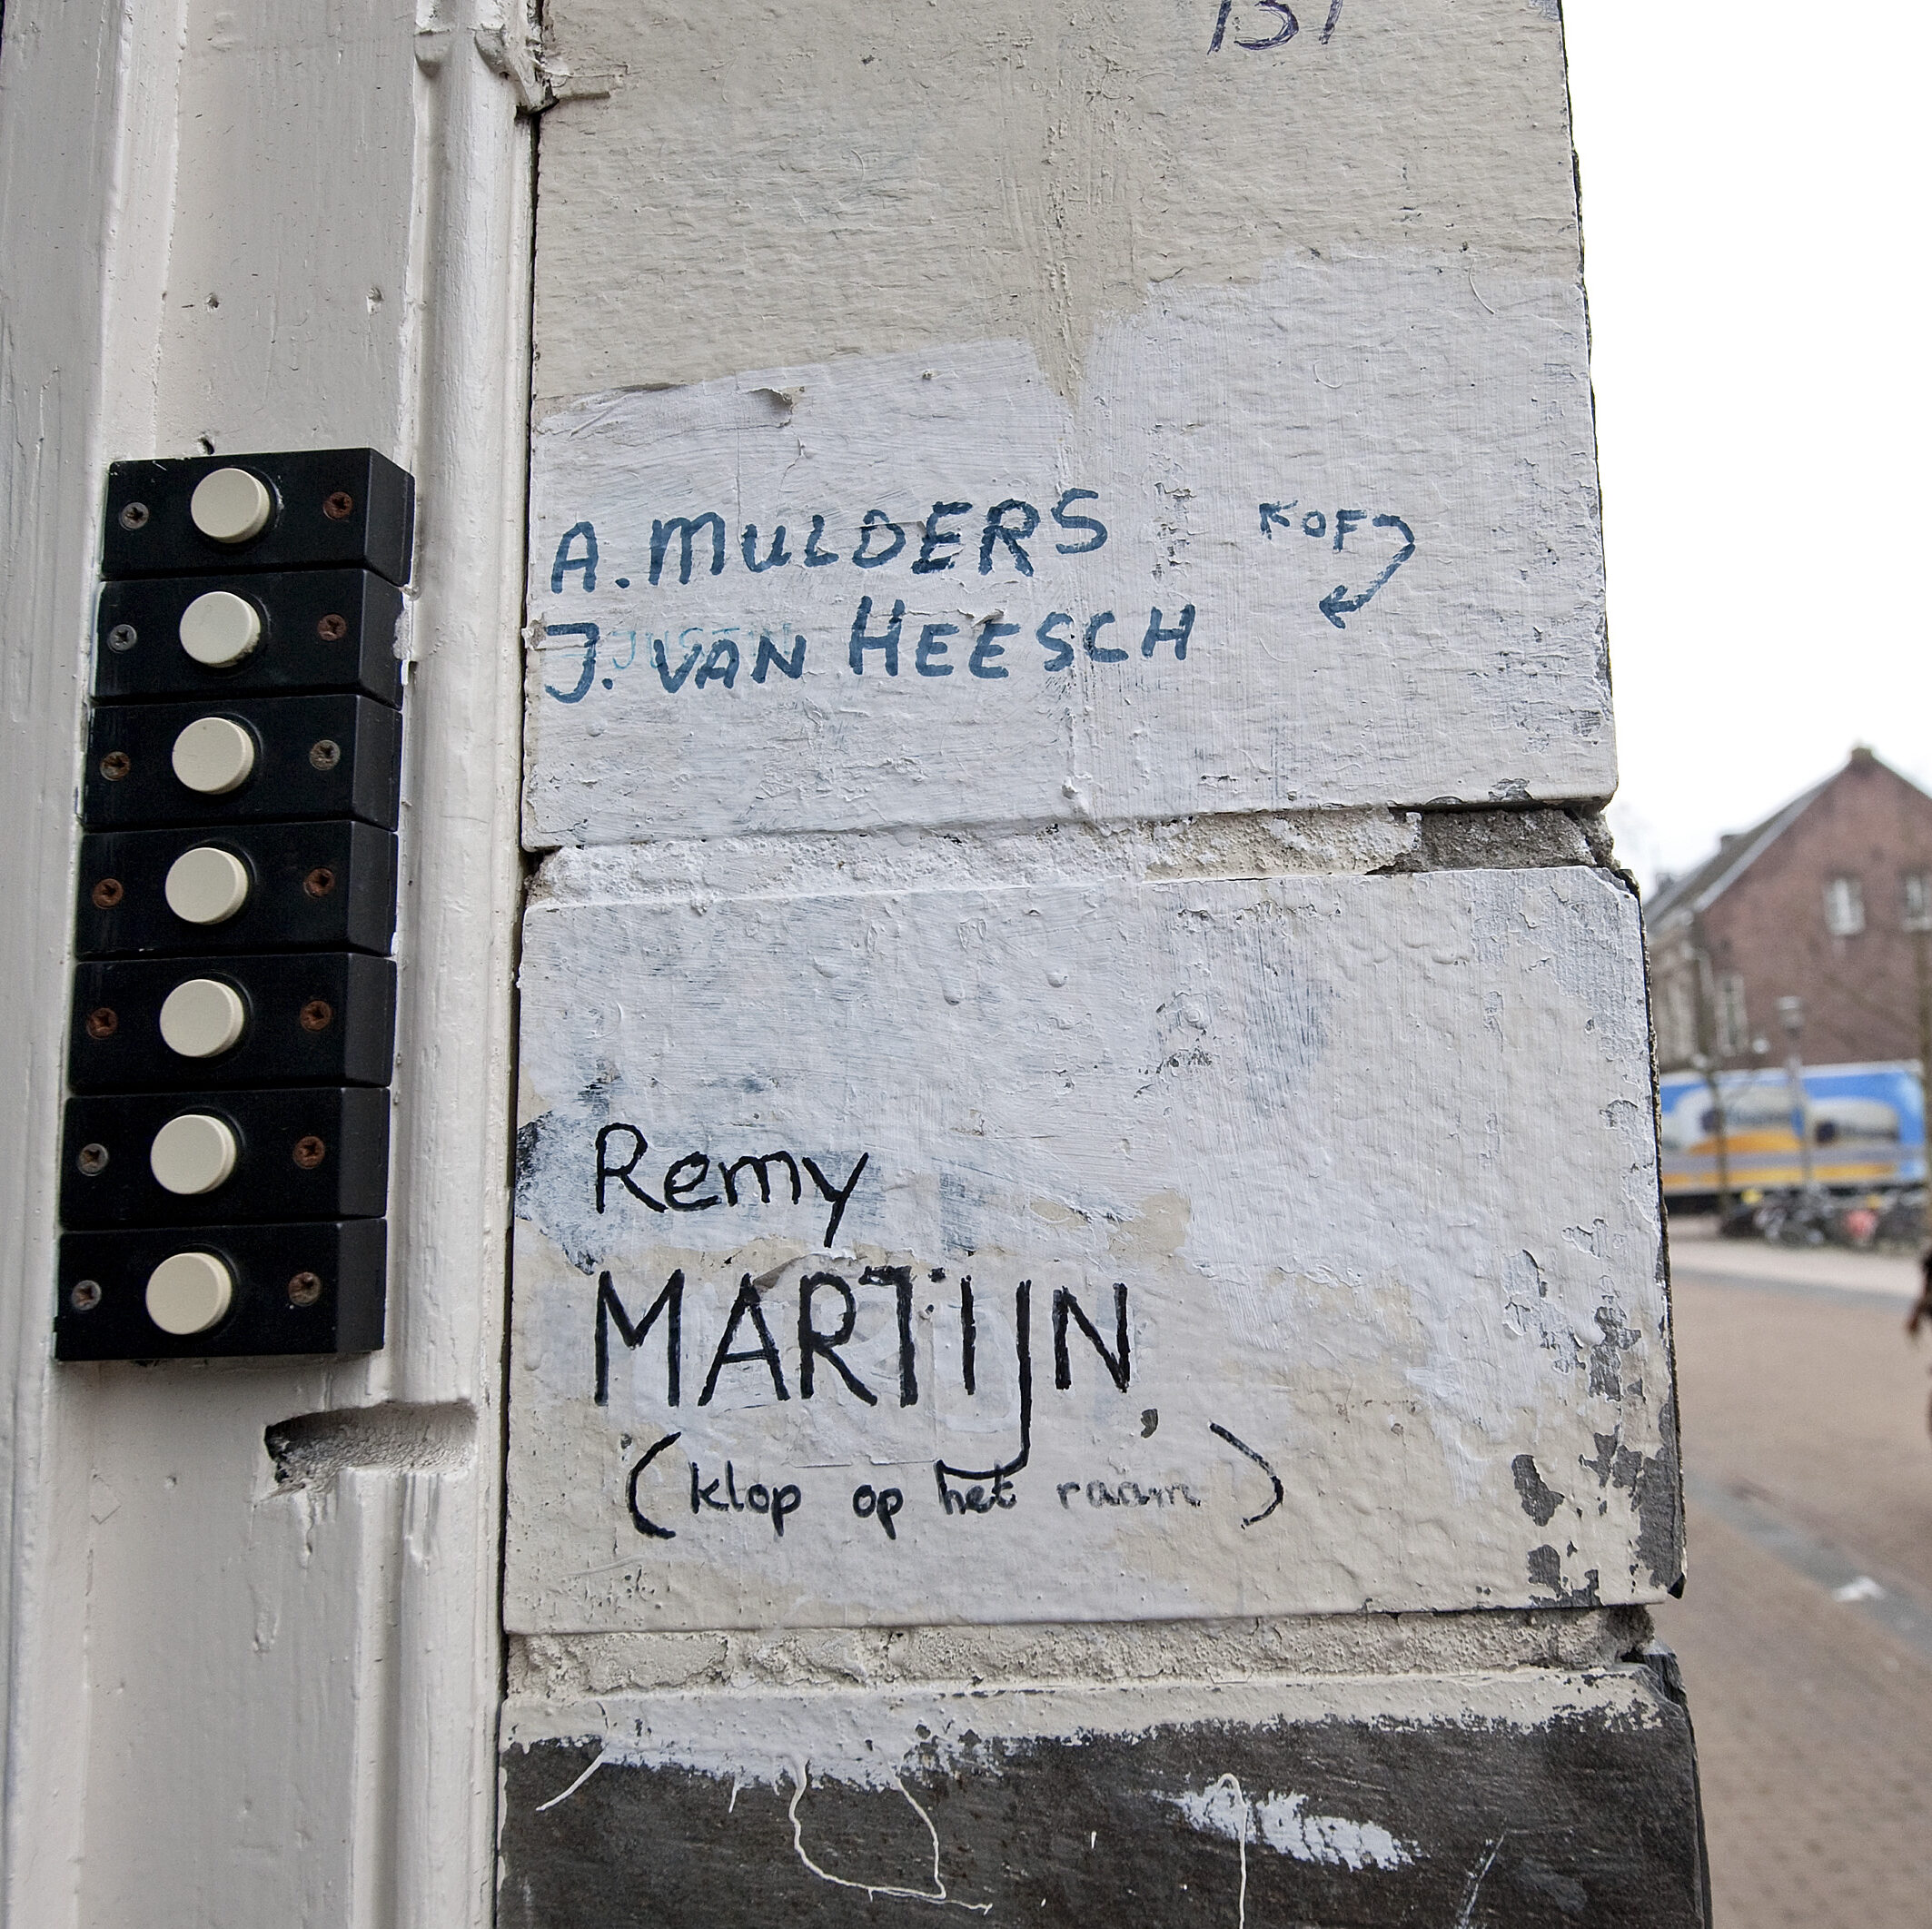 A. MULDERS KOF
J. VAN HEESCH
Remy
MARTIJN
(klop op het raam)